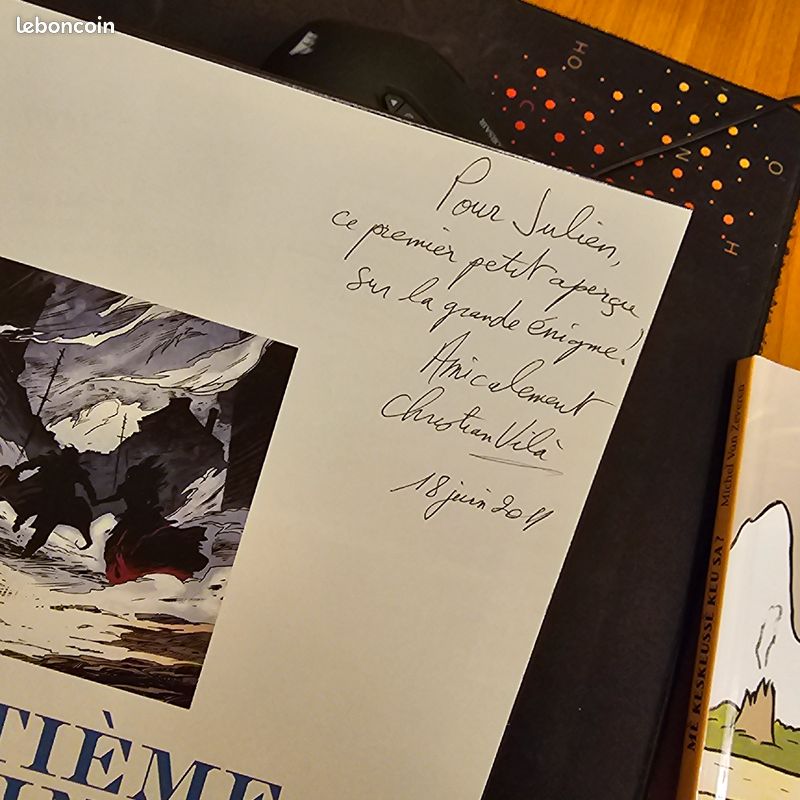 leboncoin
HO
C
N
O
H
Pour Julien,
ce premier petit aperçu
sur la grande énigme!
Amicalement
Christian Vilà
18 juin 2011
TIÈME
MÈ KESKEUSSÈ KEU SA?
Michel Van Zeveren